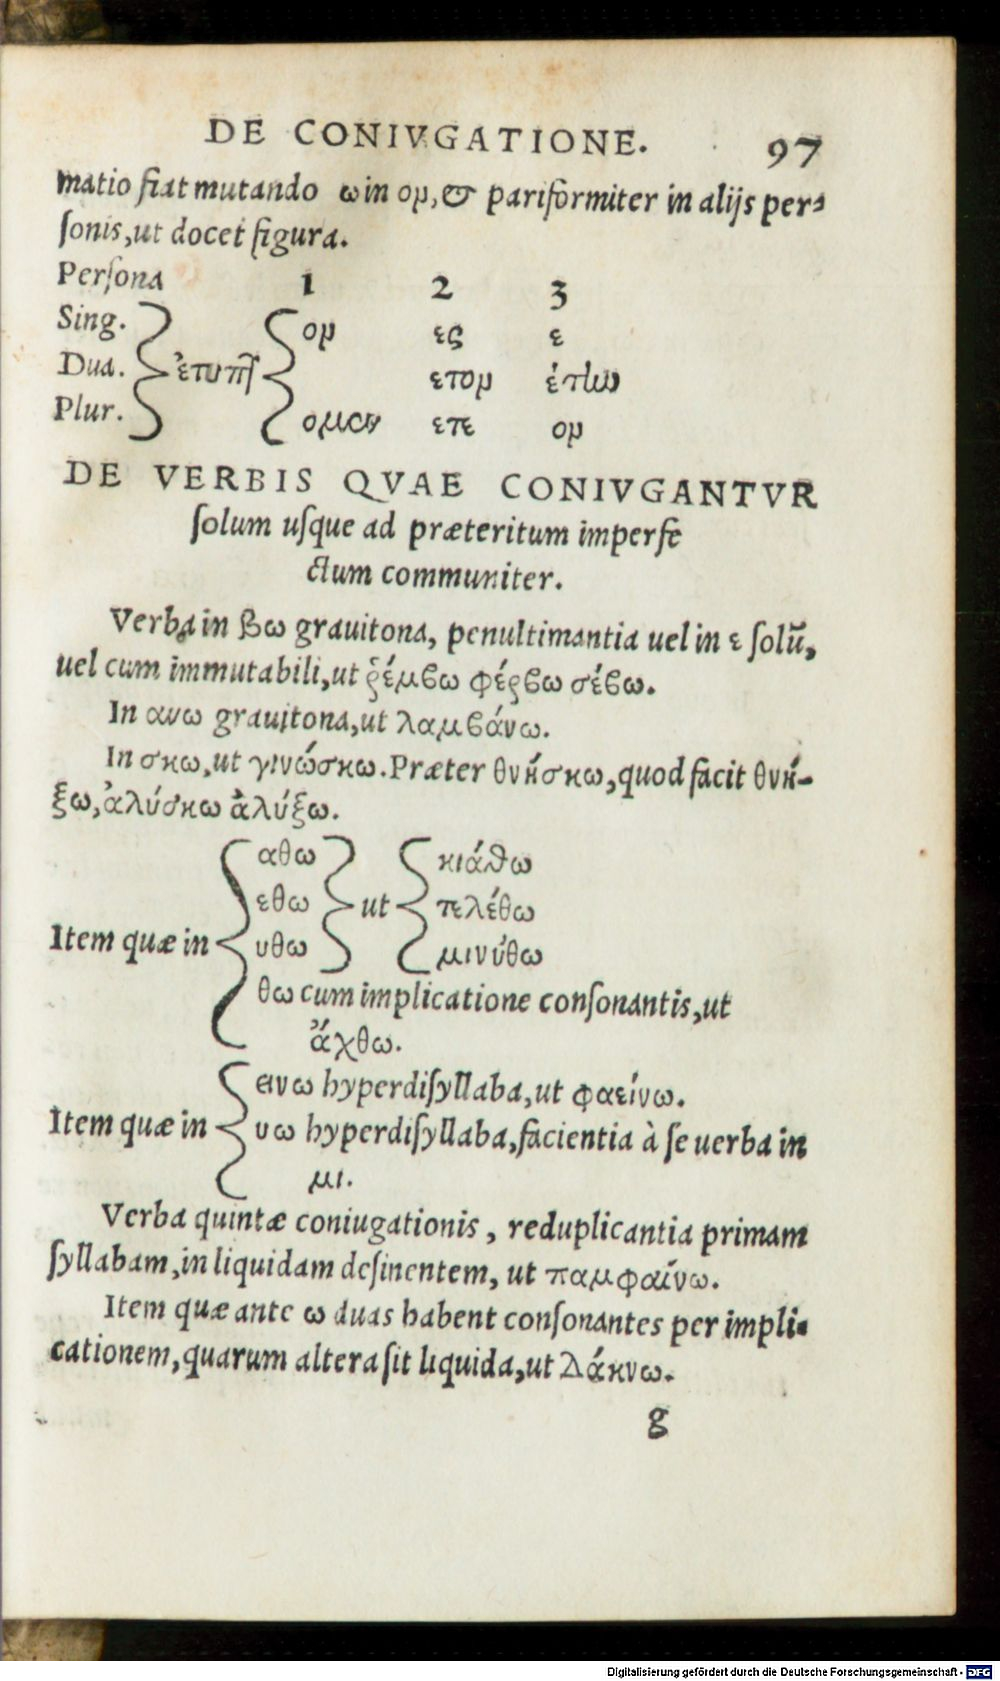 DE CONIVGATIONE. 97
matio fiat mutando ω in ομ, & pariformiter in alijs per-
sonis, ut docet figura.
Persona 1 2 3
Sing. ομ ες ε
Dua. ετομ έτlω
Plur. ομεν ετε ομ
DE VERBIS QVAE CONIVGANTVR
solum usque ad præteritum imperfe
ctum communiter.
Verba in βω grauitona, penultimantia uel in ε solũ,
uel cum immutabili, ut ῥέμβω φέρβω σέβω.
In ανω grauitona, ut λαμβάνω.
In σκω, ut γινώσκω. Præter θνήσκω, quod facit θνή-
ξω, ἀλύσκω ἀλύξω.
αθω κιάθω
εθω ut πελέθω
Item quæ in υθω μινύθω
θω cum implicatione consonantis, ut
ἄχθω.
εινω hyperdisyllaba, ut φαείνω.
Item quæ in υω hyperdisyllaba, facientia à se uerba in
μι.
Verba quintæ coniugationis, reduplicantia primam
syllabam, in liquidam desinentem, ut παμφαίνω.
Item quæ ante ω duas habent consonantes per impli-
cationem, quarum altera sit liquida, ut Δάκνω.
g
Digitalisierung gefördert durch die Deutsche Forschungsgemeinschaft - DFG